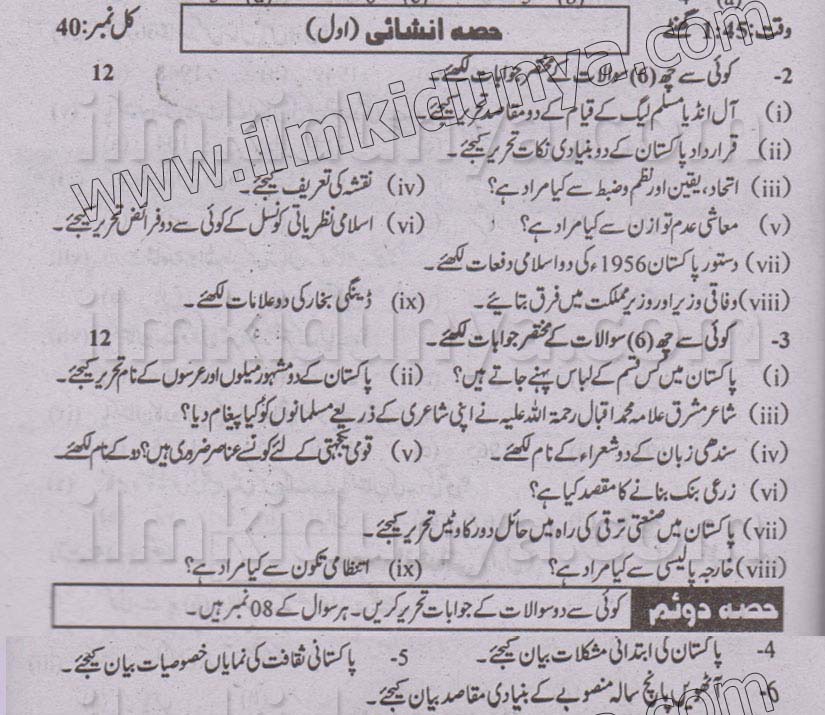 وقت: 1:45 گھنٹے حصہ انشائی (اول) کل نمبر: 40
2- کوئی سے چھ (6) سوالات کے مختصر جوابات لکھئے۔ 12
(i) آل انڈیا مسلم لیگ کے قیام کے دو مقاصد تحریر کیجئے۔
(ii) قرارداد پاکستان کے دو بنیادی نکات تحریر کیجئے۔
(iii) اتحاد، یقین اور نظم و ضبط سے کیا مراد ہے؟ (iv) نقشہ کی تعریف کیجئے۔
(v) معاشی عدم توازن سے کیا مراد ہے؟ (vi) اسلامی نظریاتی کونسل کے کوئی سے دو فرائض تحریر کیجئے۔
(vii) دستور پاکستان 1956ء کی دو اسلامی دفعات لکھئے۔
(viii) وفاقی وزیر اور وزیر مملکت میں فرق بتائیے۔ (ix) ڈینگی بخار کی دو علامات لکھئے۔
3- کوئی سے چھ (6) سوالات کے مختصر جوابات لکھئے۔ 12
(i) پاکستان میں کس قسم کے لباس پہنے جاتے ہیں؟ (ii) پاکستان کے دو مشہور میلوں اور عرسوں کے نام تحریر کیجئے۔
(iii) شاعر مشرق علامہ محمد اقبال رحمۃ اللہ علیہ نے اپنی شاعری کے ذریعے مسلمانوں کو کیا پیغام دیا؟
(iv) سندھی زبان کے دو شعراء کے نام لکھئے۔ (v) قومی یکجہتی کے لئے کونسے عناصر ضروری ہیں؟ دو کے نام لکھئے۔
(vi) زرعی بنک بنانے کا مقصد کیا ہے؟
(vii) پاکستان میں صنعتی ترقی کی راہ میں حائل دو رکاوٹیں تحریر کیجئے۔
(viii) خارجہ پالیسی سے کیا مراد ہے؟ (ix) انتظامی تکون سے کیا مراد ہے؟
حصہ دوئم کوئی سے دو سوالات کے جوابات تحریر کریں۔ ہر سوال کے 08 نمبر ہیں۔
4- پاکستان کی ابتدائی مشکلات بیان کیجئے۔ 5- پاکستانی ثقافت کی نمایاں خصوصیات بیان کیجئے۔
6- آٹھویں پانچ سالہ منصوبے کے بنیادی مقاصد بیان کیجئے۔
www.ilmkidunya.com
ilmkidunya.com
ilmkidunya.com
ilmkidunya.com